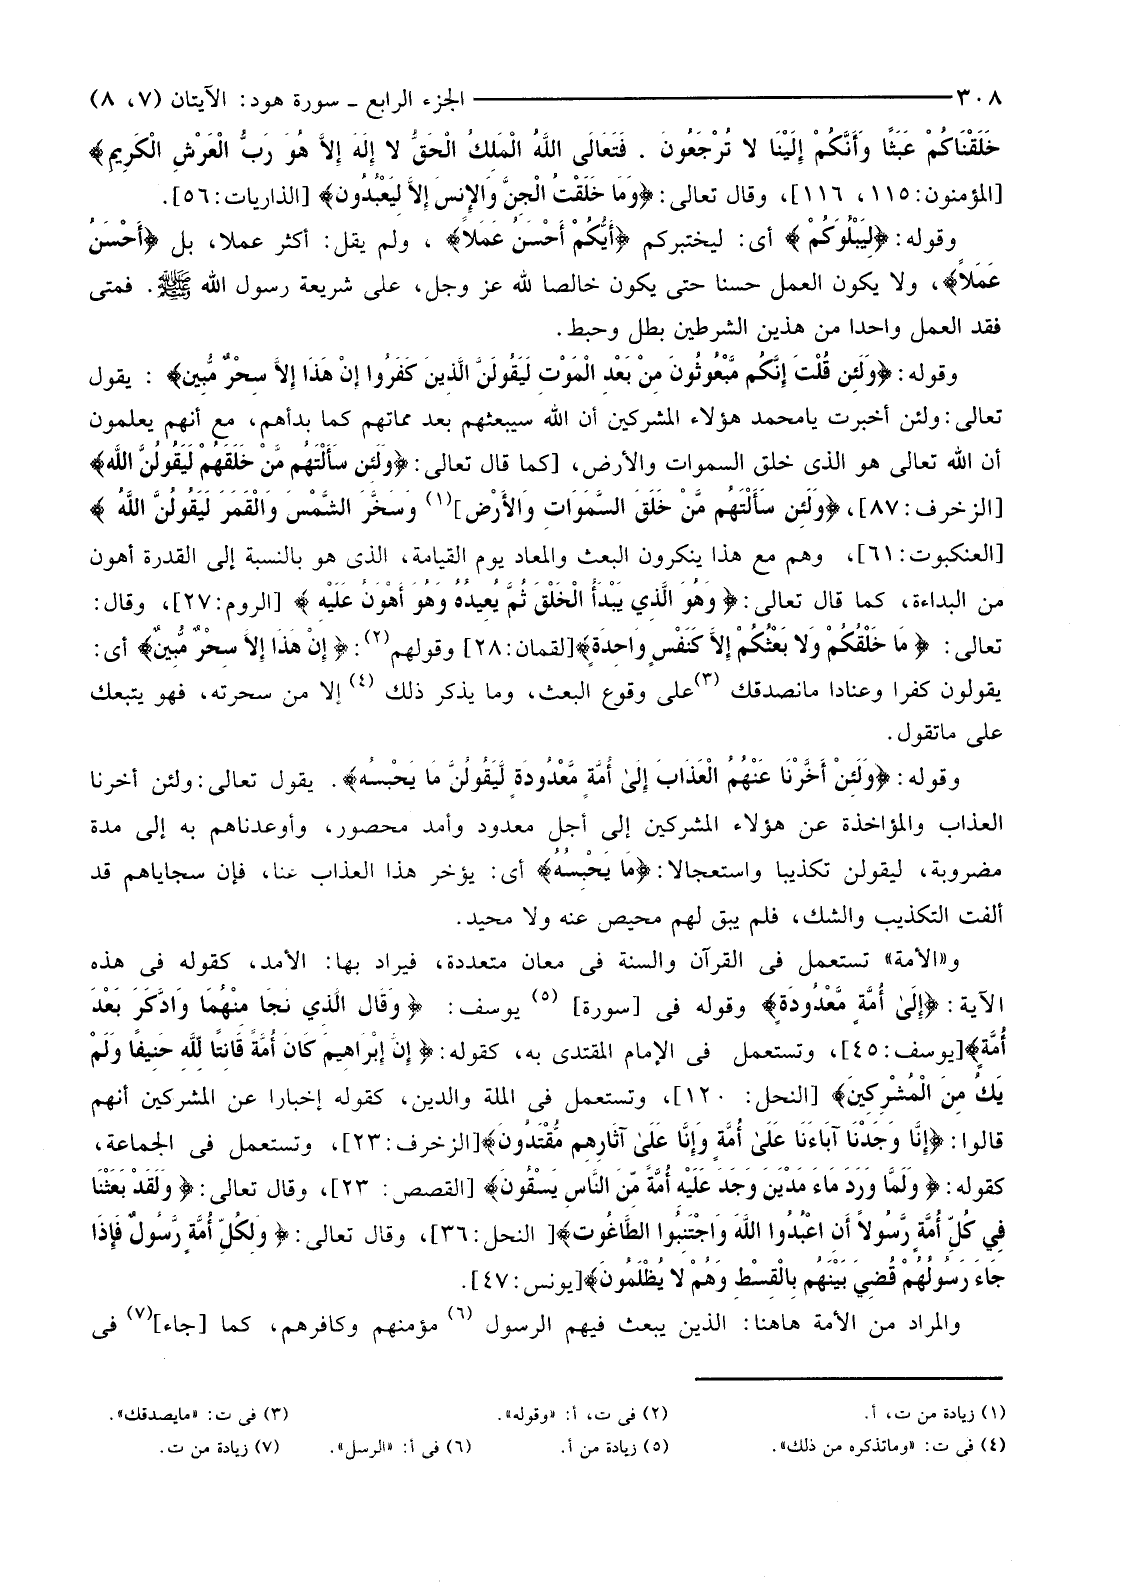 ٣٠٨ ــــــــــــــــــــــــ الجزء الرابع ـ سورة هود: الآيتان (٧، ٨)
خَلَقْنَاكُمْ عَبَثًا وَأَنَّكُمْ إِلَيْنَا لا تُرْجَعُونَ . فَتَعَالَى اللَّهُ الْمَلِكُ الْحَقُّ لا إِلَهَ إِلاَّ هُوَ رَبُّ الْعَرْشِ الْكَرِيمِ﴾
[المؤمنون:١١٥، ١١٦]، وقال تعالى:﴿وَمَا خَلَقْتُ الْجِنَّ وَالإِنسَ إِلاَّ لِيَعْبُدُونِ﴾ [الذاريات:٥٦].
وقوله:﴿لِيَبْلُوَكُمْ ﴾ أى: ليختبركم ﴿أَيُّكُمْ أَحْسَنُ عَمَلاً﴾ ، ولم يقل: أكثر عملا، بل ﴿أَحْسَنُ
عَمَلاً﴾، ولا يكون العمل حسنا حتى يكون خالصا لله عز وجل، على شريعة رسول الله ﷺ. فمتى
فقد العمل واحدا من هذين الشرطين بطل وحبط.
وقوله:﴿وَلَئِن قُلْتَ إِنَّكُم مَّبْعُوثُونَ مِنْ بَعْدِ الْمَوْتِ لَيَقُولَنَّ الَّذِينَ كَفَرُوا إِنْ هَذَا إِلاَّ سِحْرٌ مُّبِينٌ﴾ : يقول
تعالى:ولئن أخبرت يامحمد هؤلاء المشركين أن الله سيبعثهم بعد مماتهم كما بدأهم، مع أنهم يعلمون
أن الله تعالى هو الذى خلق السموات والأرض، [كما قال تعالى:﴿وَلَئِن سَأَلْتَهُم مَّنْ خَلَقَهُمْ لَيَقُولُنَّ اللَّه﴾
[الزخرف:٨٧]،﴿وَلَئِن سَأَلْتَهُم مَّنْ خَلَقَ السَّمَوَاتِ وَالأَرْضَ](١) وَسَخَّرَ الشَّمْسَ وَالْقَمَرَ لَيَقُولُنَّ اللَّهُ ﴾
[العنكبوت:٦١]، وهم مع هذا ينكرون البعث والمعاد يوم القيامة، الذى هو بالنسبة إلى القدرة أهون
من البداءة، كما قال تعالى:﴿ وَهُوَ الَّذِي يَبْدَأُ الْخَلْقَ ثُمَّ يُعِيدُهُ وَهُوَ أَهْوَنُ عَلَيْهِ ﴾ [الروم:٢٧]، وقال:
تعالى: ﴿ مَا خَلْقُكُمْ وَلا بَعْثُكُمْ إِلاَّ كَنَفْسٍ وَاحِدَةٍ﴾[لقمان:٢٨] وقولهم(٢):﴿ إِنْ هَذَا إِلاَّ سِحْرٌ مُّبِينٌ﴾ أى:
يقولون كفرا وعنادا مانصدقك (٣)على وقوع البعث، وما يذكر ذلك (٤) إلا من سحرته، فهو يتبعك
على ماتقول.
وقوله:﴿وَلَئِنْ أَخَّرْنَا عَنْهُمُ الْعَذَابَ إِلَىٰ أُمَّةٍ مَّعْدُودَةٍ لَّيَقُولُنَّ مَا يَحْبِسُه﴾. يقول تعالى:ولئن أخرنا
العذاب والمؤاخذة عن هؤلاء المشركين إلى أجل معدود وأمد محصور، وأوعدناهم به إلى مدة
مضروبة، ليقولن تكذيبا واستعجالا:﴿مَا يَحْبِسُهُ﴾ أى: يؤخر هذا العذاب عنا، فإن سجاياهم قد
ألفت التكذيب والشك، فلم يبق لهم محيص عنه ولا محيد.
و«الأمة» تستعمل فى القرآن والسنة فى معان متعددة، فيراد بها: الأمد، كقوله فى هذه
الآية:﴿إِلَىٰ أُمَّةٍ مَّعْدُودَةٍ﴾ وقوله فى [سورة] (٥) يوسف: ﴿ وَقَالَ الَّذِي نَجَا مِنْهُمَا وَادَّكَرَ بَعْدَ
أُمَّةٍ﴾[يوسف:٤٥]، وتستعمل فى الإمام المقتدى به، كقوله:﴿ إِنَّ إِبْرَاهِيمَ كَانَ أُمَّةً قَانِتًا لِّلَّهِ حَنِيفًا وَلَمْ
يَكُ مِنَ الْمُشْرِكِينَ﴾ [النحل: ١٢٠]، وتستعمل فى الملة والدين، كقوله إخبارا عن المشركين أنهم
قالوا:﴿إِنَّا وَجَدْنَا آبَاءَنَا عَلَىٰ أُمَّةٍ وَإِنَّا عَلَىٰ آثَارِهِم مُّقْتَدُونَ﴾[الزخرف:٢٣]، وتستعمل فى الجماعة،
كقوله:﴿ وَلَمَّا وَرَدَ مَاءَ مَدْيَنَ وَجَدَ عَلَيْهِ أُمَّةً مِّنَ النَّاسِ يَسْقُونَ﴾ [القصص: ٢٣]، وقال تعالى:﴿ وَلَقَدْ بَعَثْنَا
فِي كُلِّ أُمَّةٍ رَّسُولاً أَنِ اعْبُدُوا اللَّهَ وَاجْتَنِبُوا الطَّاغُوت﴾[ النحل:٣٦]، وقال تعالى:﴿ وَلِكُلِّ أُمَّةٍ رَّسُولٌ فَإِذَا
جَاءَ رَسُولُهُمْ قُضِيَ بَيْنَهُم بِالْقِسْطِ وَهُمْ لا يُظْلَمُونَ﴾[يونس:٤٧].
والمراد من الأمة هاهنا: الذين يبعث فيهم الرسول (٦) مؤمنهم وكافرهم، كما [جاء](٧) فى
(١) زيادة من ت، أ. (٢) فى ت، أ: «وقوله». (٣) فى ت: «مايصدقك».
(٤) فى ت: «وماتذكره من ذلك». (٥) زيادة من أ. (٦) فى أ: «الرسل». (٧) زيادة من ت.